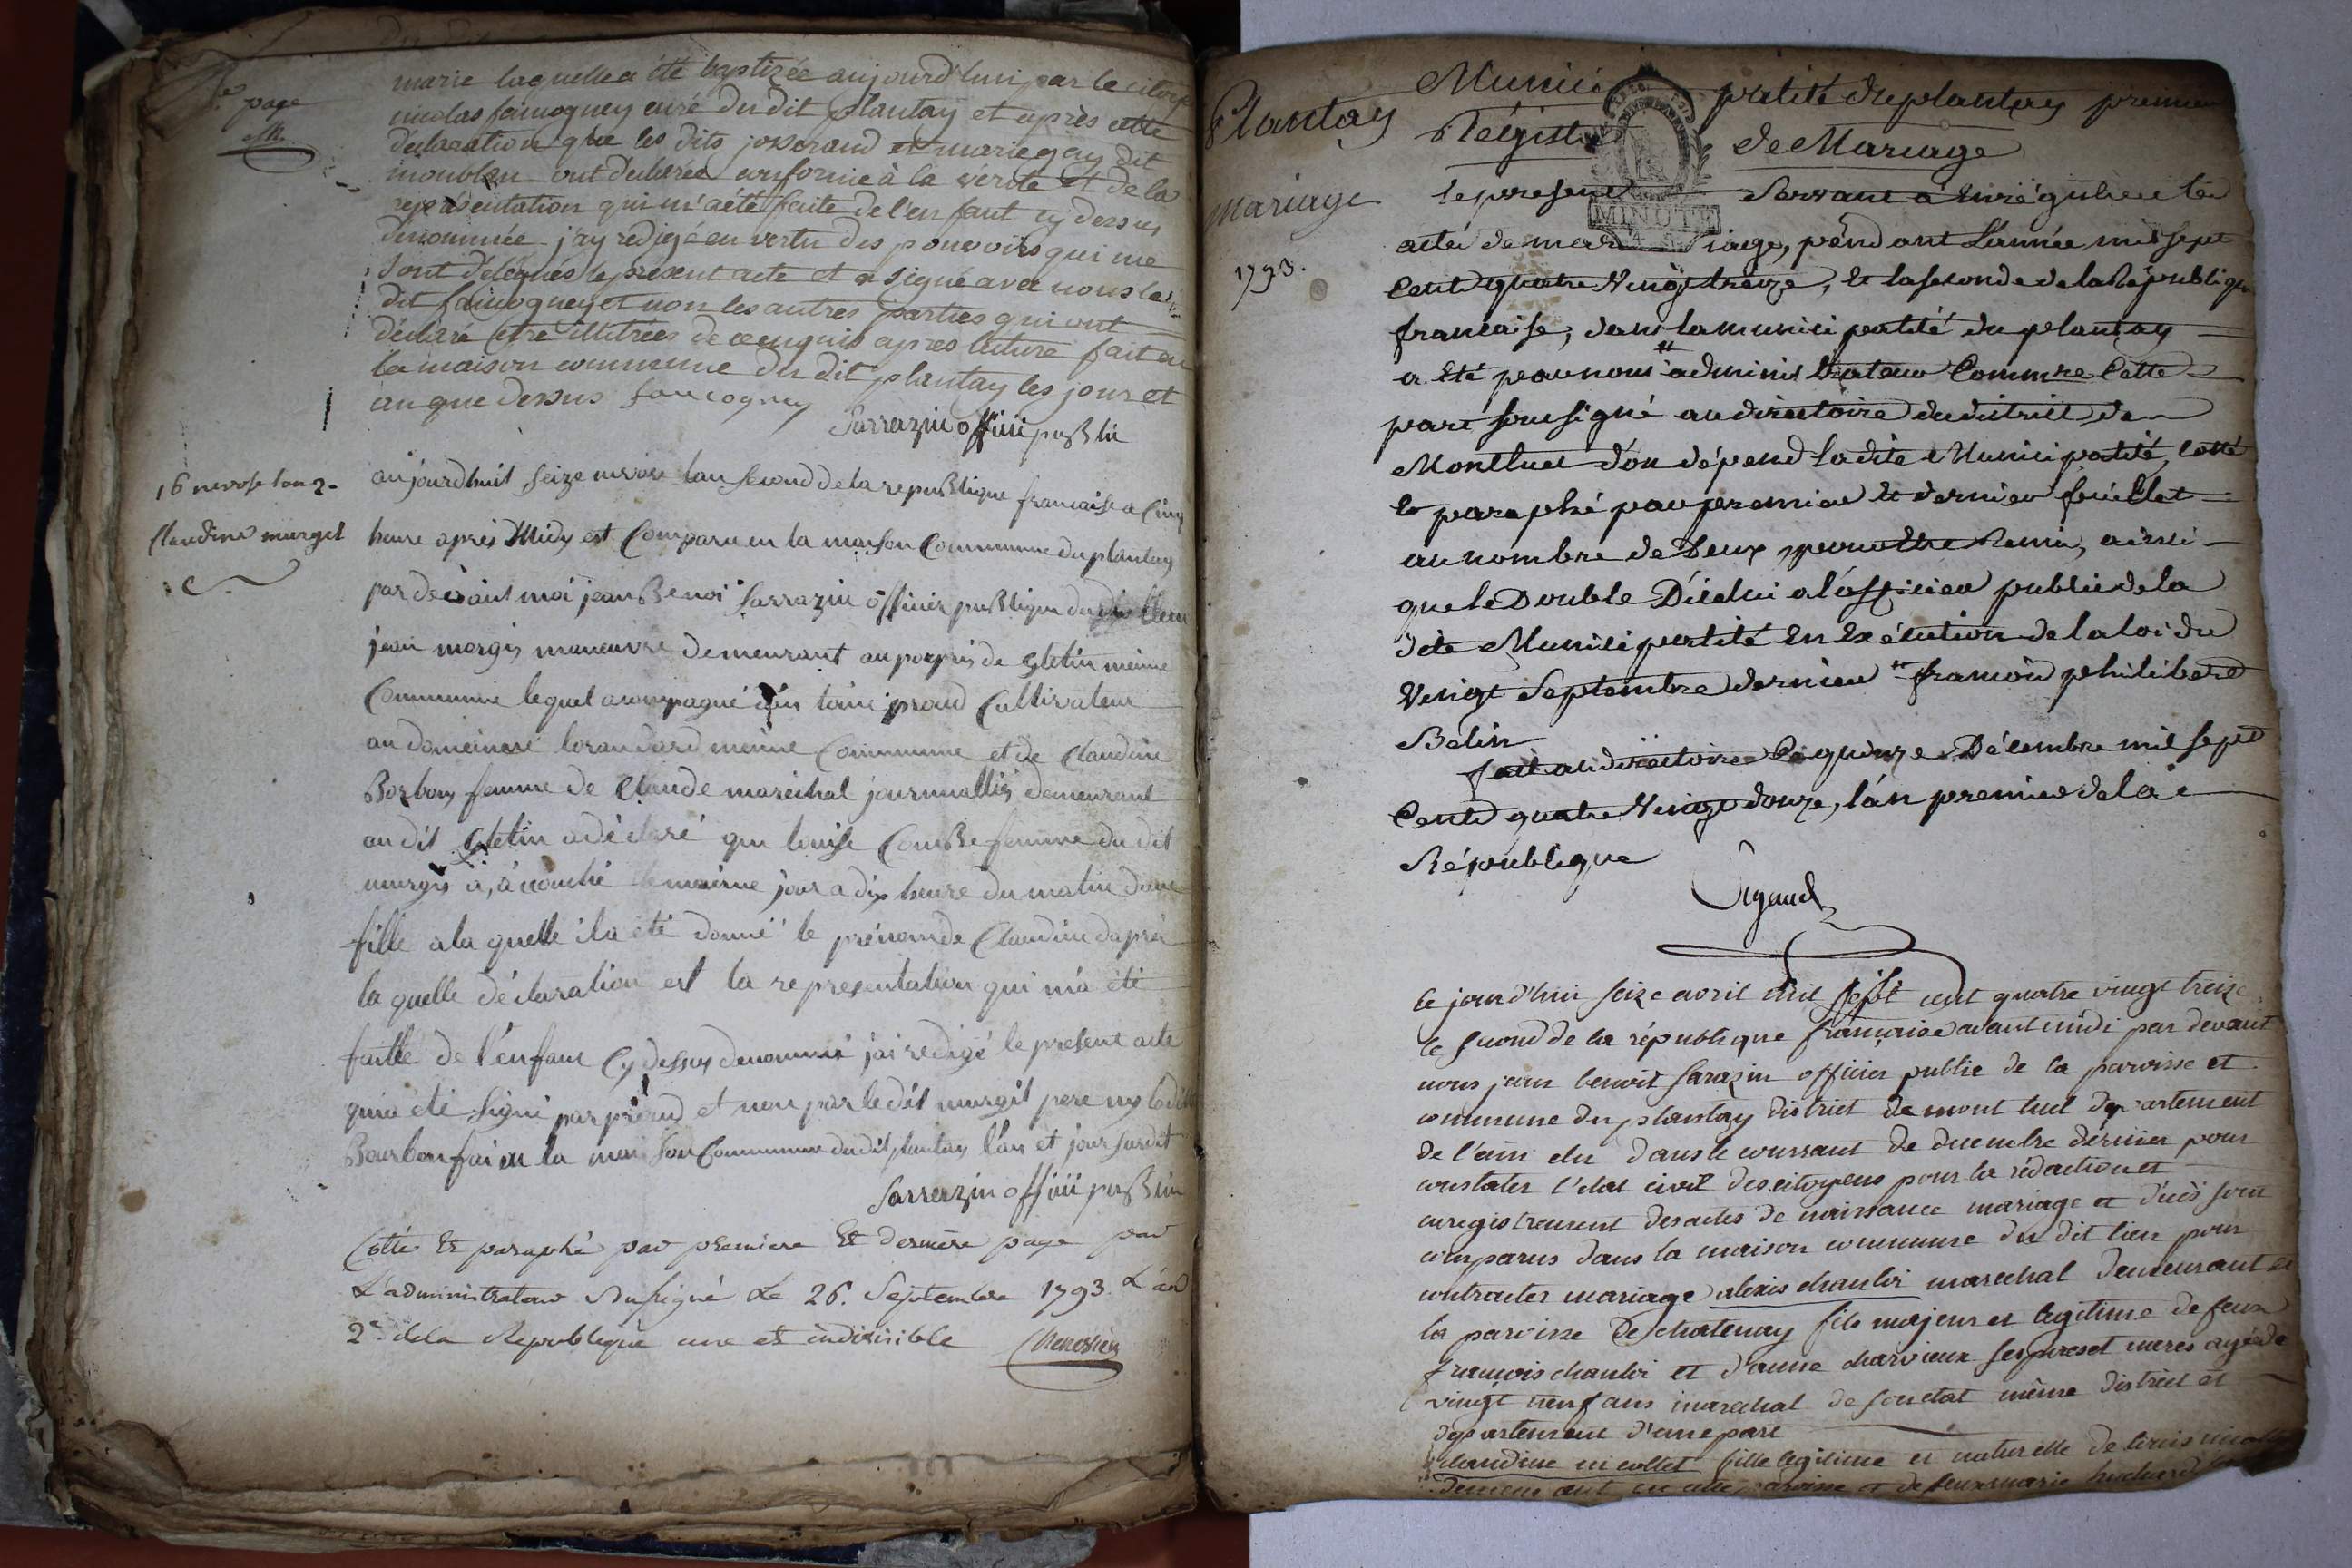 page
marie laquelle a été baptizée aujourd'hui par le citoyen
nicolas faucogney curé du dit plantay et après cette
déclaration que les dits josserand et marie gay dit
ont déclarée conforme à la verité et de la
representation qui m'a été faite de l'enfant cy dessus
denommée j'ay redigé en vertu des pouvoirs qui me
sont délégués le présent acte et a signé avec nous le
dit faucogney et non les autres parties qui ont
déclaré être illitrées de ce enquis après lecture fait en
la maison commune du dit plantay les jour et
an que dessus faucogney
Sarrazin offiii publii
16 nivose lan 2
Claudine murget
aujourdhuit seize nivose lan second de la republique francaise a Cinq
heure après Midy est Comparu en la maison Commune du plantay
par devant moi jean Benoi Sarrazin officier publique du dit lieu
jean morgis maneuvre demeurant au porpris de gletin meime
Commune lequel acompagné praud Cultivateur
au domeine meime Commune et de Claudine
Borbon femme de Claude marechal journallié demeurant
au dit gletin a déclaré que louise femme du dit
murgis a, acouché le meime jour a dix heure du matin dune
fille a la quelle il a été donné le prénom de Claudine dapré
la quelle déclaration est la representation qui m'a été
faitte de l'enfant Cy dessus denommé jai redigé le present acte
qui a été signé par praud et non par le dit murgit pere ny la ditte
Bourbon fai en la maison Commune du dit plantay l'an et jour surdit
Sarrazin offiii publii
Cotté et paraphé par premiere et derniere page par
L'administrateur susigné Le 26. Septembre 1793. L'an
2e. dela Republique une et indivisible
Plantay
mariage
1793.
Municipalité du plantay premier
Régistre de Mariage
MINUTE
le present Servant a Enrégistrer les
actes de mariage, pendant L'année mil sept
Cent quatre Vingt treize, et la seconde de la République
francaise, dans la municipalité du plantay
a Eté par nous " administrateur Comm.re Cotte
paré soussigné au directoire du district de
Montluel d'ou dépend la dite Municipalité, cotté
et paraphé par premier et dernier feuillet
au nombre de Deux pour être Remis, ainsi
que le Double D'icelui a l'officier public de la
dite Municipalité En Exécution de la loi du
Vingt Septembre dernier " francois philibert
Bélin
fait au directoire le quinze Décembre mil sept
Cent quatre Vingt douze, l'an premier de la
République
ce jourd'hui seize avril mil sept cent quatre vingt treize
le second de la république française avant midi par devant
nous jean benoit Sarazin officier public de la paroisse et
commune du plantay district de mont luel departement
de l'ain elu dans le courrant de decembre dernier pour
constater l'etat civil des citoyens pour la rédaction et
enregistrement des actes de naissance mariage et décès sont
comparus dans la maison commune du dit lieu pour
contracter mariage alexis chanloi marechal demeurant en
la paroisse de chatenay fils majeur et legitime de feux
francois chanloi et d'anne charvieux ses pere et mere agé de
vingt neuf ans marechal de son etat même district et
departement d'une part
claudine nicollet fille legitime et naturelle de
demeurant en cette paroisse et de feu marie